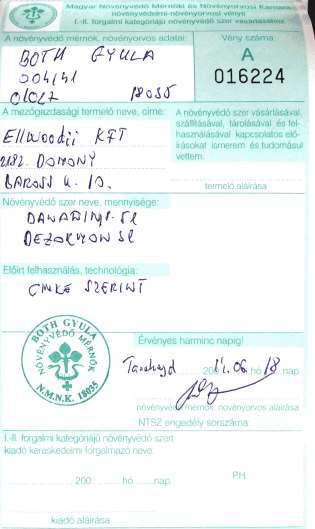 Magyar Növényvédő Mérnöki és Növényorvosi Kamara
növényvédelmi-növényorvosi vénye
I.-II. forgalmi kategóriájú növényvédő szer vásárlásához
A növényvédő mérnök, növényorvos adatai:
BOTH GYULA
004141
01027 18035
Vény száma:
A
016224
A mezőgazdasági termelő neve, címe:
Ellwoodii KFT
2182. DOMONY
BAROSS U. 10.
A növényvédő szer vásárlásával,
szállításával, tárolásával és fel-
használásával kapcsolatos elő-
írásokat ismerem és tudomásul
vettem.
termelő aláírása
Növényvédő szer neve, mennyisége:
5L
DEZORMON 5L
Előírt felhasználás, technológia:
CIMKE SZERINT
BOTH GYULA
NÖVÉNYVÉDŐ MÉRNÖK
N.M.N.K. 18035
Érvényes harminc napig!
200 14. 06 hó 18 nap
növényvédő mérnök, növényorvos aláírása
NTSZ engedély sorszáma
I.-II. forgalmi kategóriájú növényvédő szert
kiadó kereskedelmi forgalmazó neve:
200 hó nap
PH
kiadó aláírása